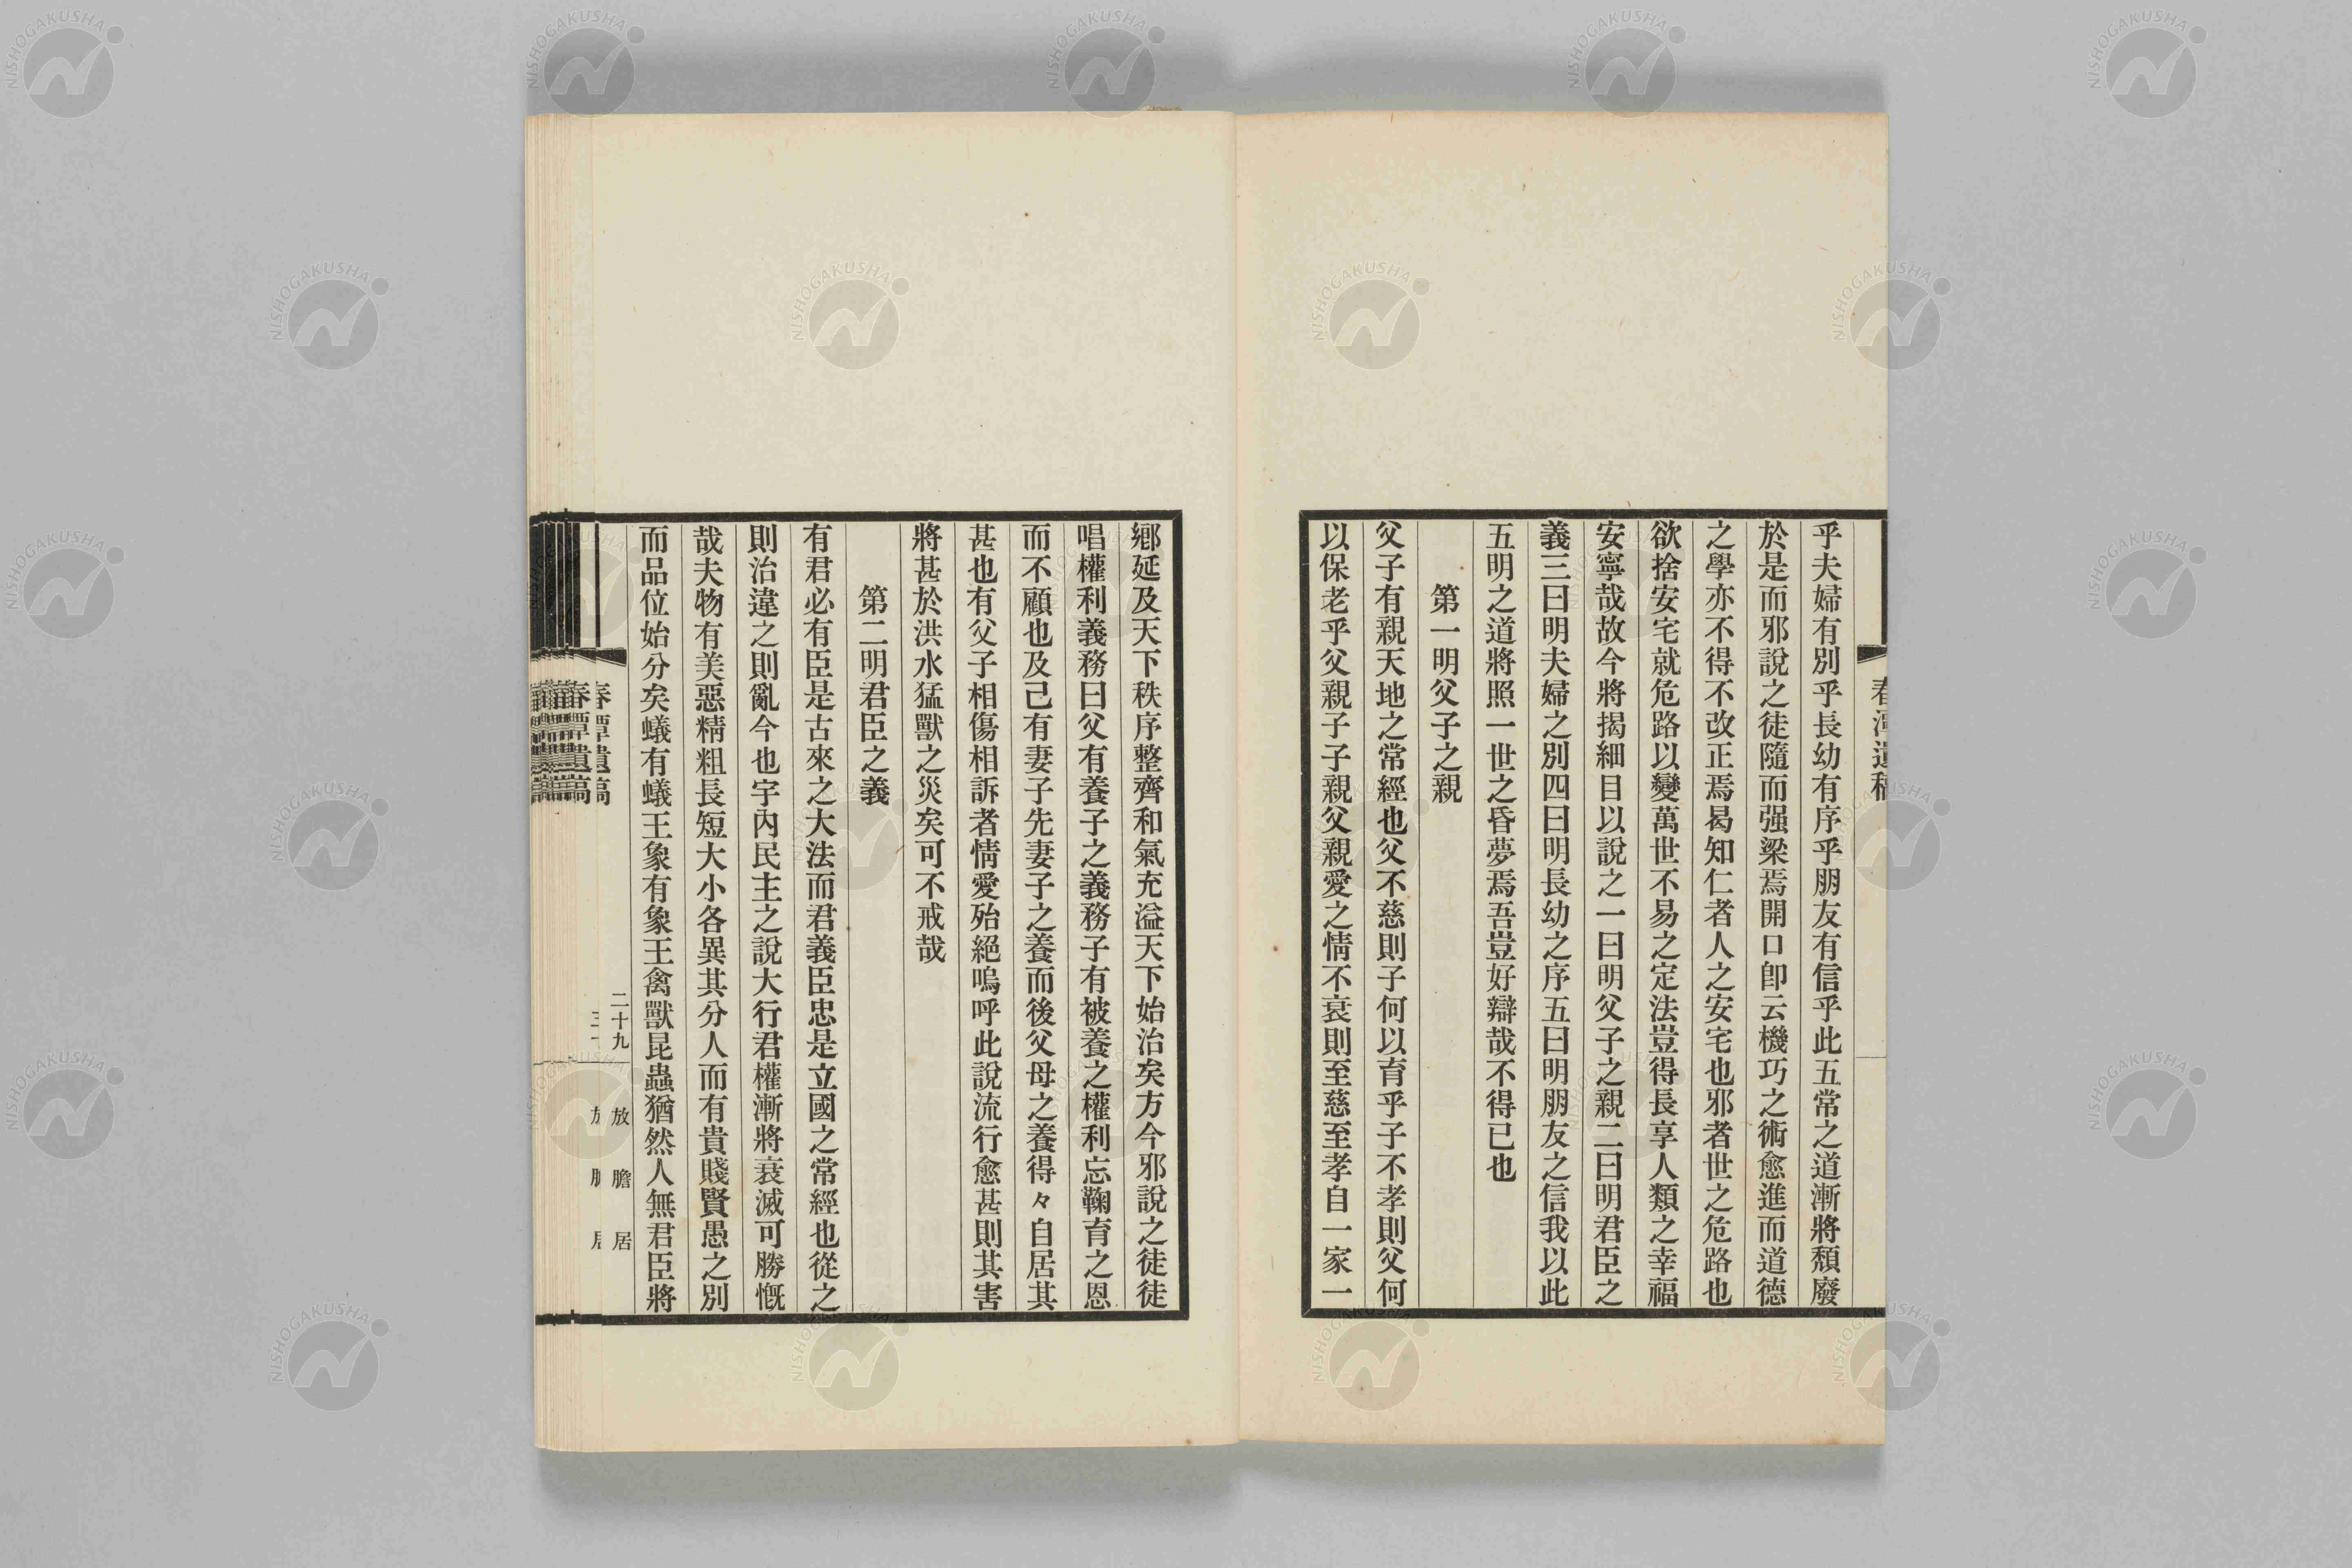 乎夫婦有別乎長幼有序乎朋友有信乎此五常之道漸將頽廢
於是而邪說之徒隨而强梁焉開口卽云機巧之術愈進而道德
之學亦不得不改正焉曷知仁者人之安宅也邪者世之危路也
欲捨安宅就危路以變萬世不易之定法豈得長享人類之幸福
安寧哉故今將揭細目以說之一曰明父子之親二曰明君臣之
義三曰明夫婦之別四曰明長幼之序五曰明朋友之信我以此
五明之道將照一世之昏夢焉吾豈好辯哉不得已也
第一明父子之親
父子有親天地之常經也父不慈則子何以育乎子不孝則父何
以保老乎父親子子親父親愛之情不衰則至慈至孝自一家一
鄕延及天下秩序整齊和氣充溢天下始治矣方今邪說之徒徒
唱權利義務曰父有養子之義務子有被養之權利忘鞠育之恩
而不顧也及己有妻子先妻子之養而後父母之養得々自居其
甚也有父子相傷相訴者情愛殆絕嗚呼此說流行愈甚則其害
將甚於洪水猛獸之災矣可不戒哉
第二明君臣之義
有君必有臣是古來之大法而君義臣忠是立國之常經也從之
則治違之則亂今也宇內民主之說大行君權漸將衰滅可勝慨
哉夫物有美惡精粗長短大小各異其分人而有貴賤賢愚之別
而品位始分矣蟻有蟻王象有象王禽獸昆蟲猶然人無君臣將
春潭遺稿
二十九
放膽居
NISHOGAKUSHA